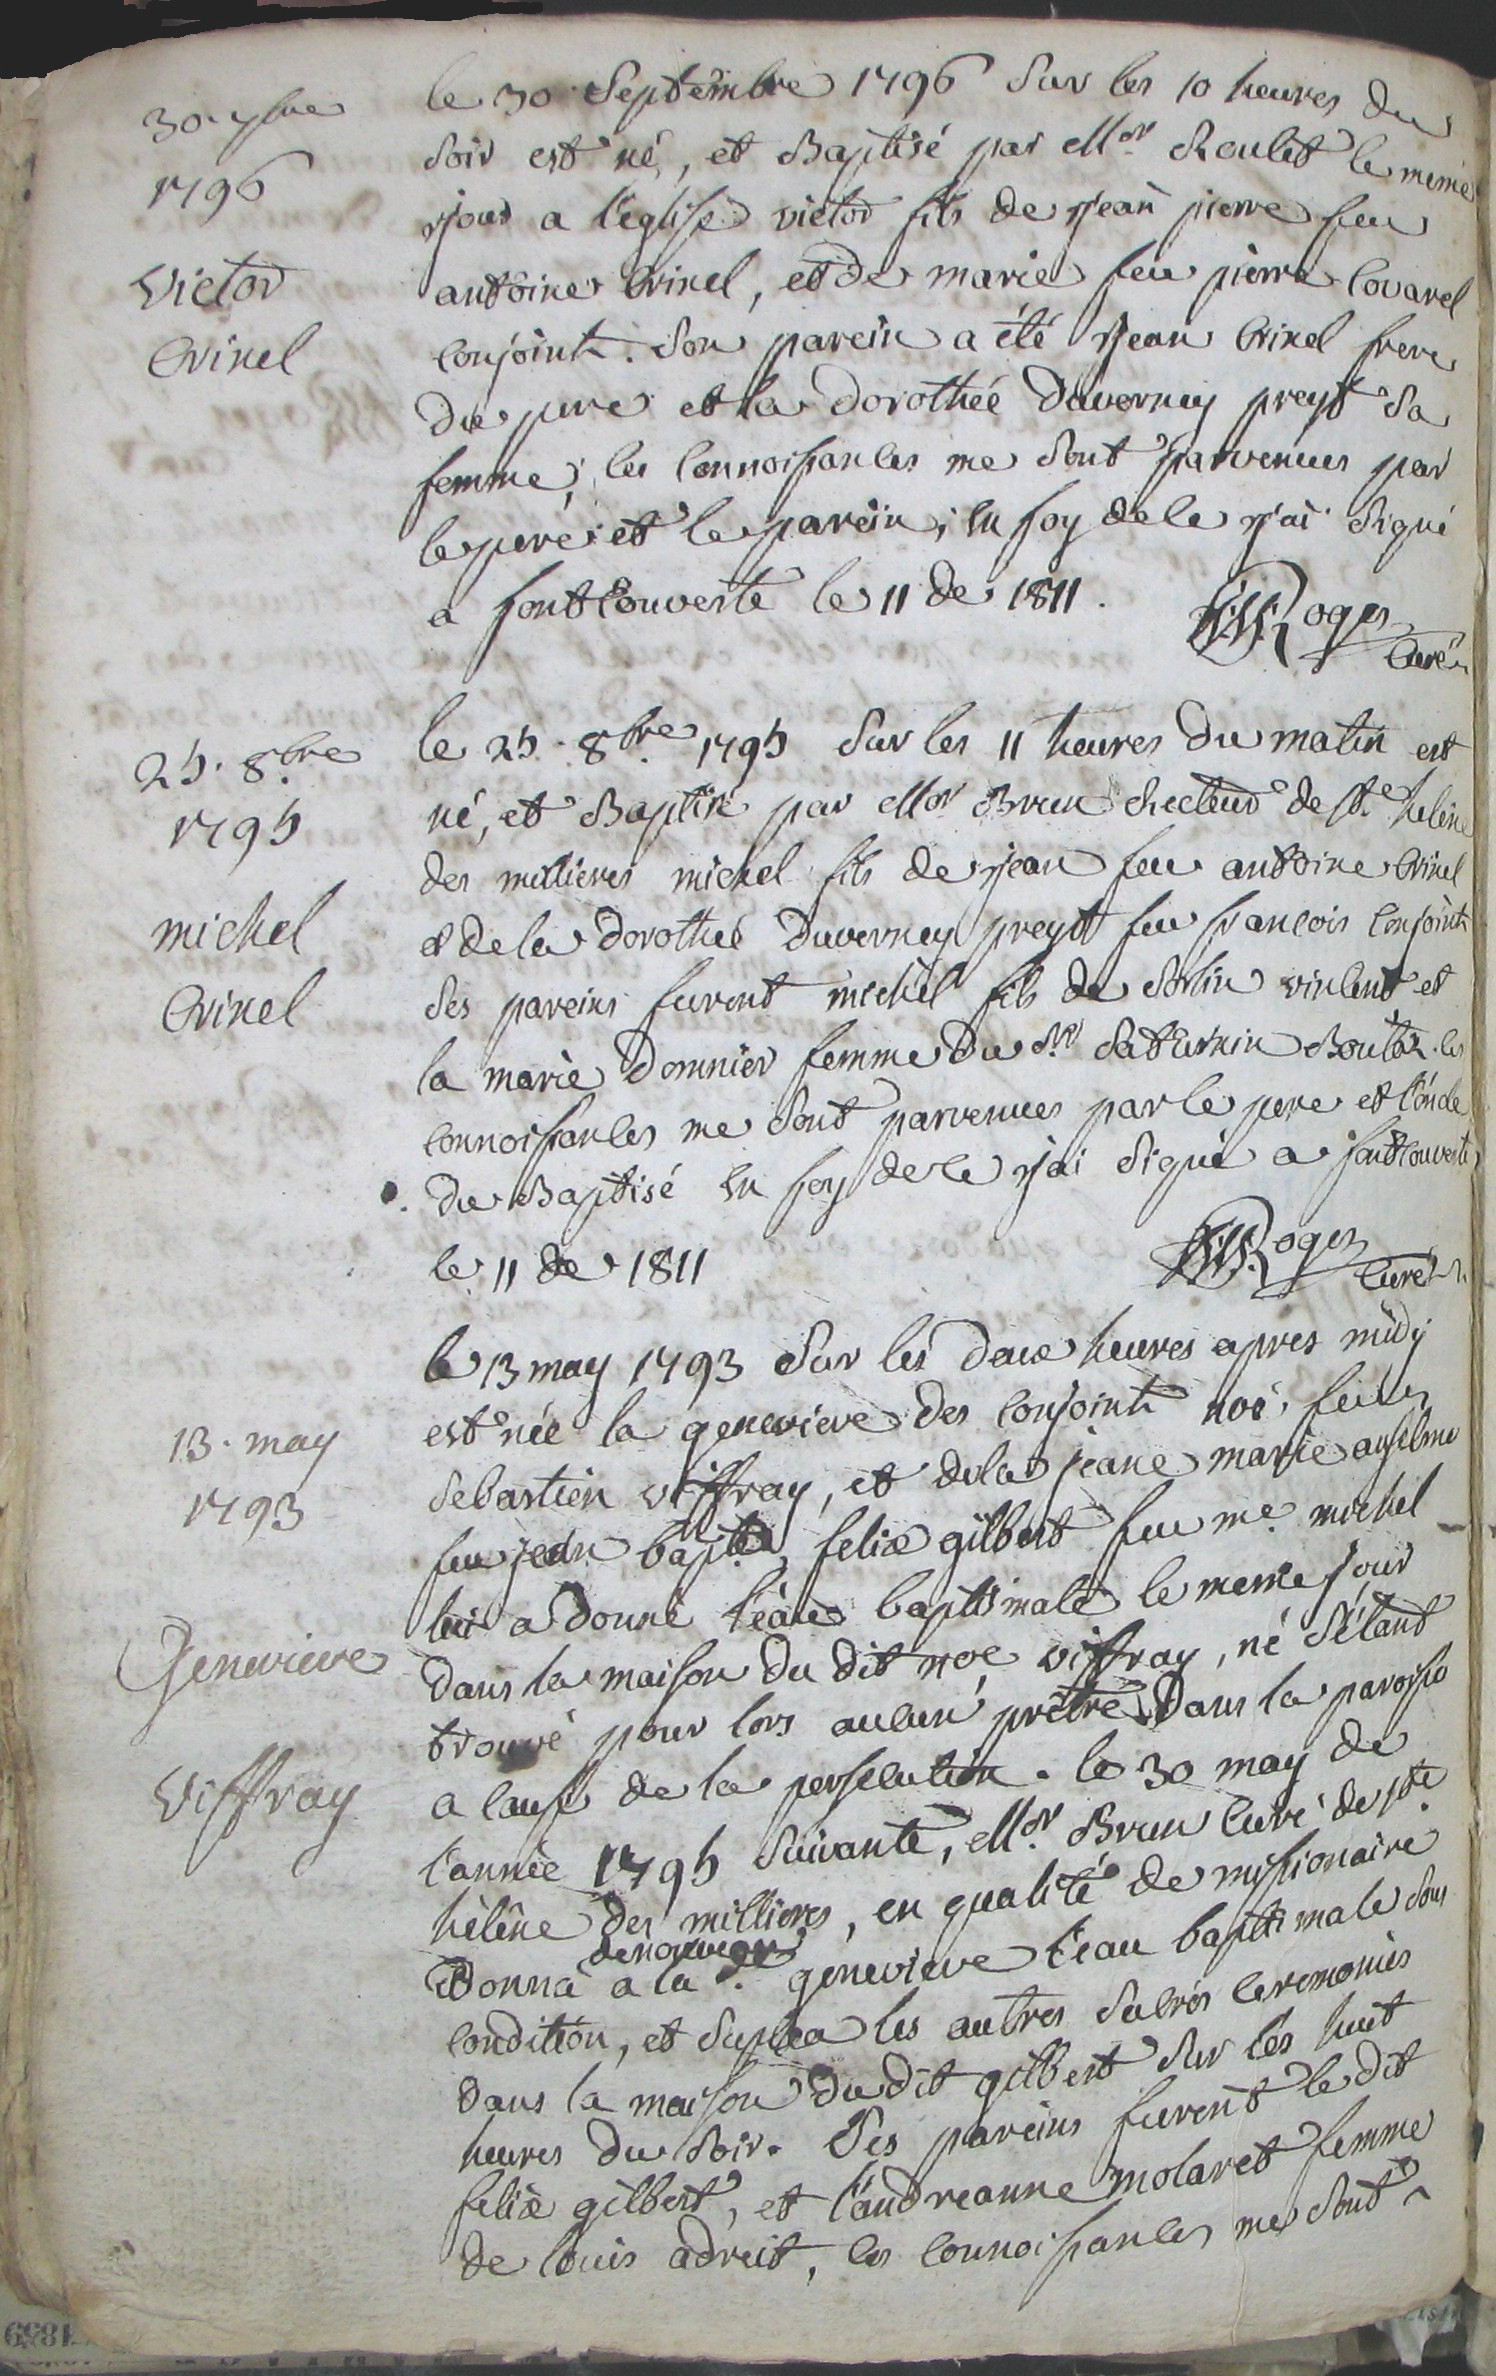 30 7bre
1796
Victor
Crinel
le 30 Septembre 1796 Sur les 10 heures du
Soir est né, et Baptisé par Mr. Roulet le meme
jour a l'eglise victor fils de jean pierre feu
antoine Crinel, et de marie feu pierre Couarel
conjoints. Son parein a été jean Crinel frere
du pere et la Dorothée Duverney preyt Sa
femme; les connoissances me Sont parvenues par
le pere et le parein; en foy de ce j'ai Signé
a fontcouverte le 11 de 1811.
Roger
Curé
25. 8bre
1795
michel
Crinel
le 25. 8bre. 1795 Sur les 11 heures Du matin est
né, et Baptisé par Mr Brun Recteur de Ste heléne
des millieres michel fils de jean feu antoine Crinel
& de la Dorothée Duverney preyt feu françois conjoints
Ses pareins furent michel fils de Sorlin vincent et
la marie Domnier femme Du Sr. Saturnin Boutaz. les
connoissances me Sont parvenues par le pere et l'oncle
Du Baptisé en foy de ce j'ai Signé a fontcouverte
le 11 de 1811
Roger
Curé
13. may
1793
Genevieve
Viffray
le 13 may 1793 Sur les Deux heures apres midy
est née la genevieve des conjoints noé, feu
Sebastien viffray, et de la jeane marie anselme
feu jean bapte, felix gilbert feu me. michel
lui a donné l'eau baptismale le meme jour
Dans la maison Du dit noé viffray, ne S'étant
trouvé pour lors aucun prêtre Dans la paroisse
a cause de la persecution. le 30 may de
l'année 1795 Suivante, Mr. Brun Curé de Ste.
héléne Des millieres, en qualité de missionaire
Donna a la denommée genevieve l'eau baptismale Sous
condition, et Suplea les autres Sacrés ceremonies
Dans la maison Du dit gilbert Sur les huit
heures Du Soir. Ses pareins furent le dit
felix gilbert, et l'andreanne molaret femme
de louis adreit, les connoissances me Sont